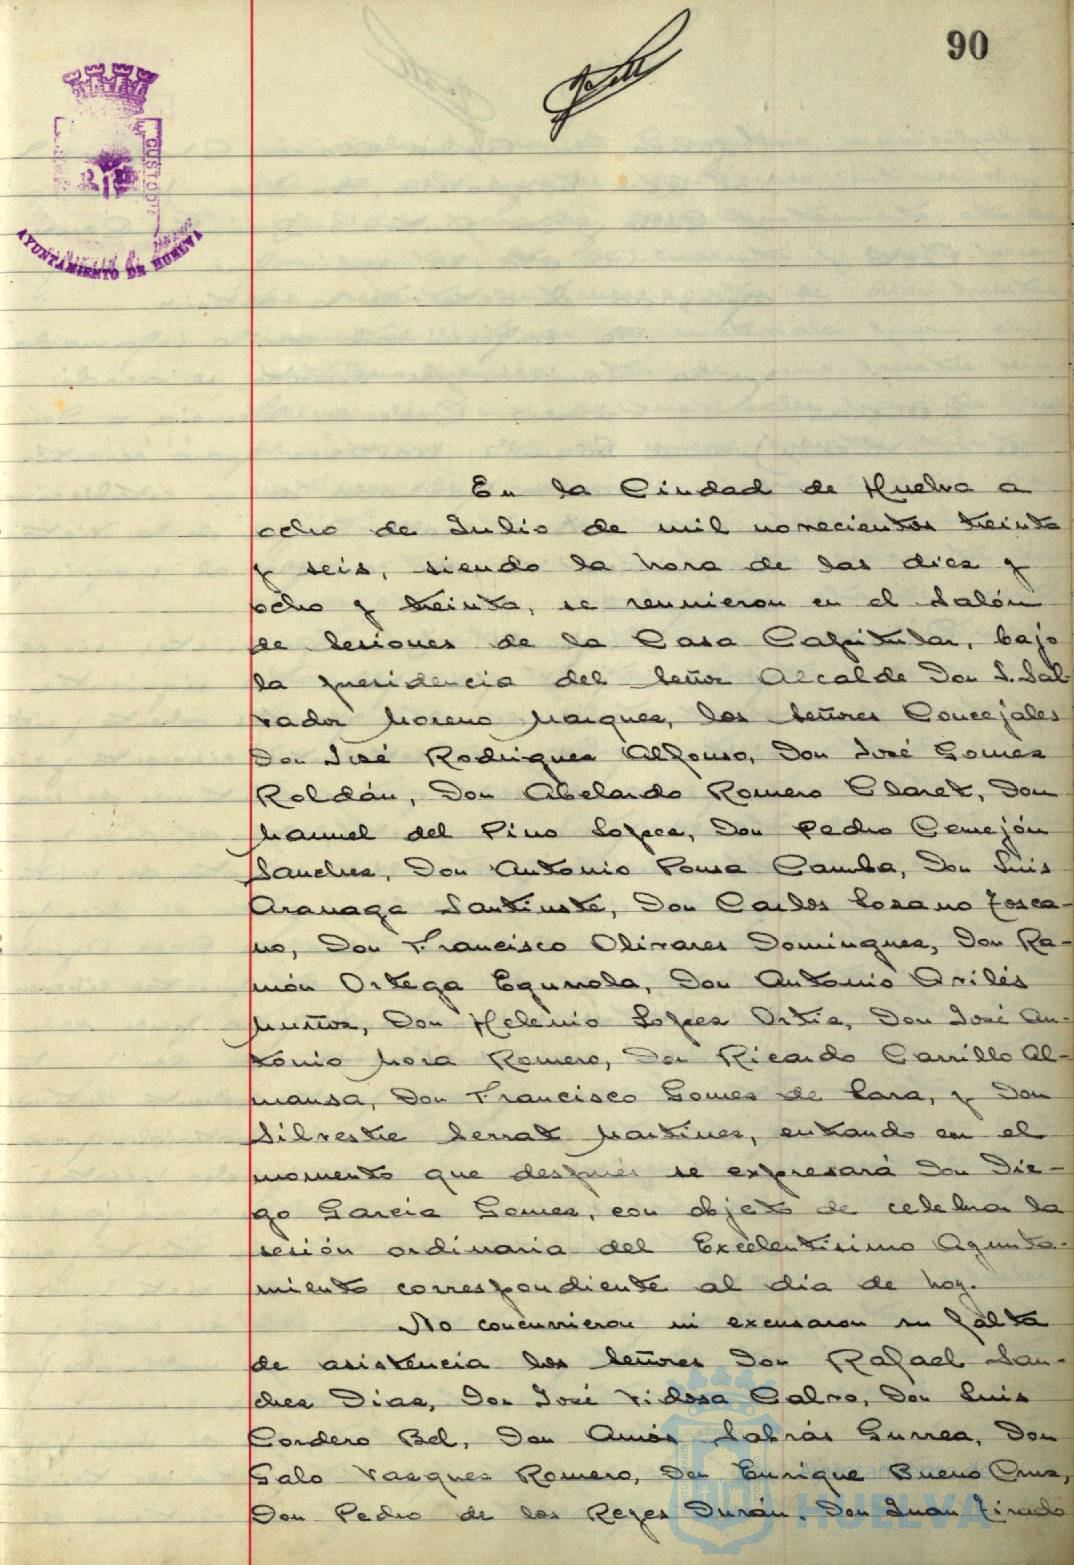 90
CUSTODI
AYUNTAMIENTO DE HUELVA
En la Ciudad de Huelva a
ocho de Julio de mil novecientos treinta
y seis, siendo la hora de las diez y
ocho y treinta, se reunieron en el Salón
de Sesiones de la Casa Capitular, bajo
la presidencia del Señor Alcalde Don S. Sal
vador Moreno Marquez, los Señores Concejales
Don José Rodriguez Alfonso, Don José Gomez
Roldán, Don Abelardo Romero Claret, Don
Manuel del Pino Lopez, Don Pedro Cerrejón
Sanchez, Don Antonio Pousa Camba, Don Luis
Aranaga Santiuste, Don Carlos Lozano Tosca-
no, Don Francisco Olivares Dominguez, Don Ra-
món Ortega Egurrola, Don Antonio Avilés
Muñoz, Don Helenio Lopez Ortiz, Don José An-
tonio Mora Romero, Don Ricardo Carrillo Al-
mansa, Don Francisco Gomez de Lara, y Don
Silvestre Serrat Martinez, entrando en el
momento que después se expresará Don Die-
go Garcia Gomez, con objeto de celebrar la
sesión ordinaria del Excelentísimo Ayunta-
miento correspondiente al día de hoy.
No concurrieron ni excusaron su falta
de asistencia los Señores Don Rafael San-
chez Diaz, Don José Vidosa Calvo, Don Luis
Cordero Bel, Don Amós Sabrás Gurrea, Don
Galo Vazquez Romero, Don Enrique Bueno Cruz,
Don Pedro de los Reyes Durán, Don Juan Tirado
HUELVA